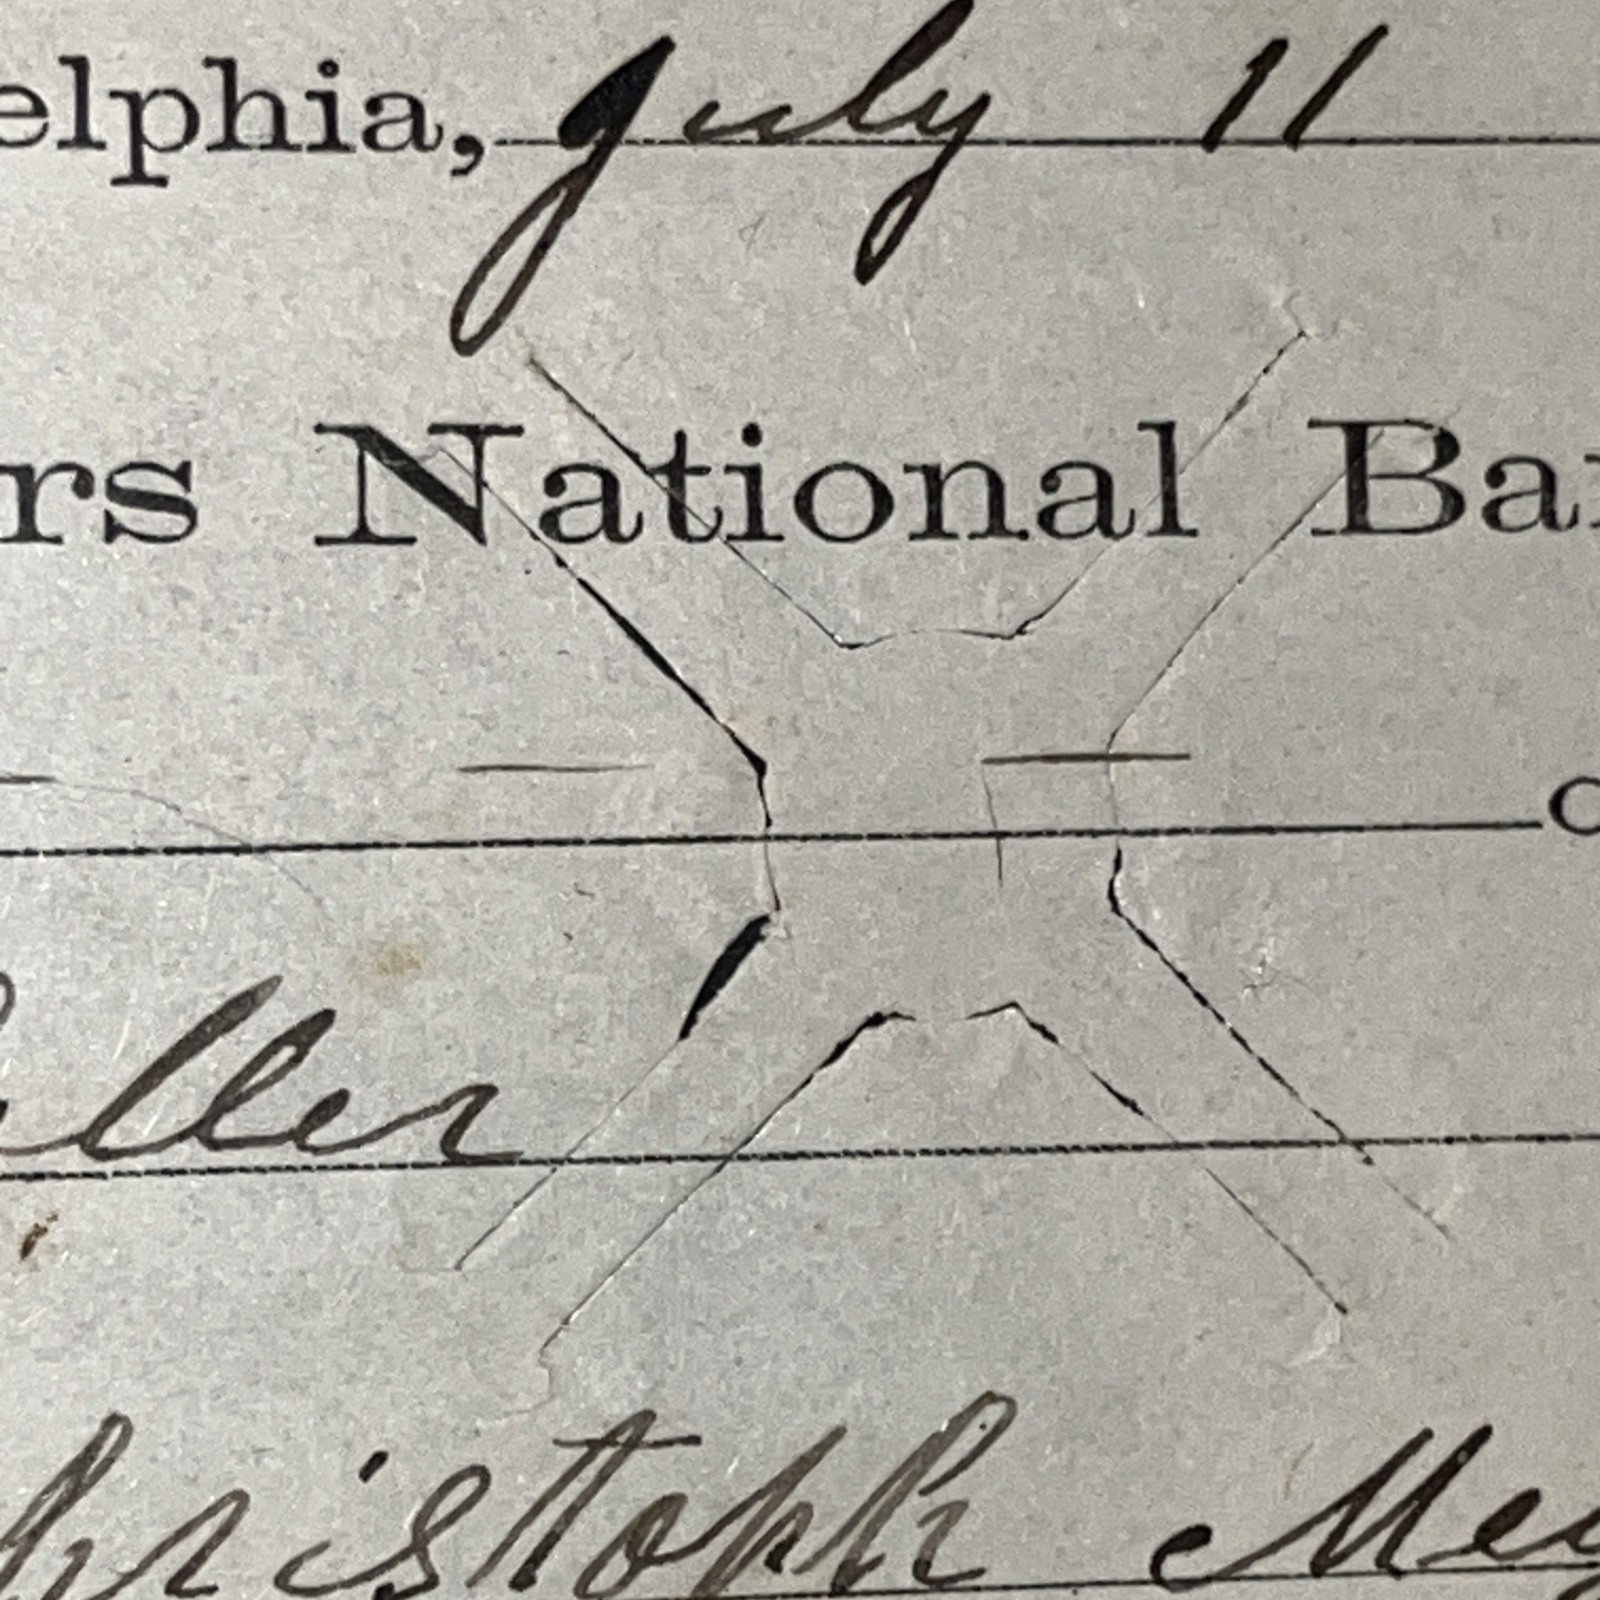 elphia, July 11
rs National Ba
ller
hristoph Mey